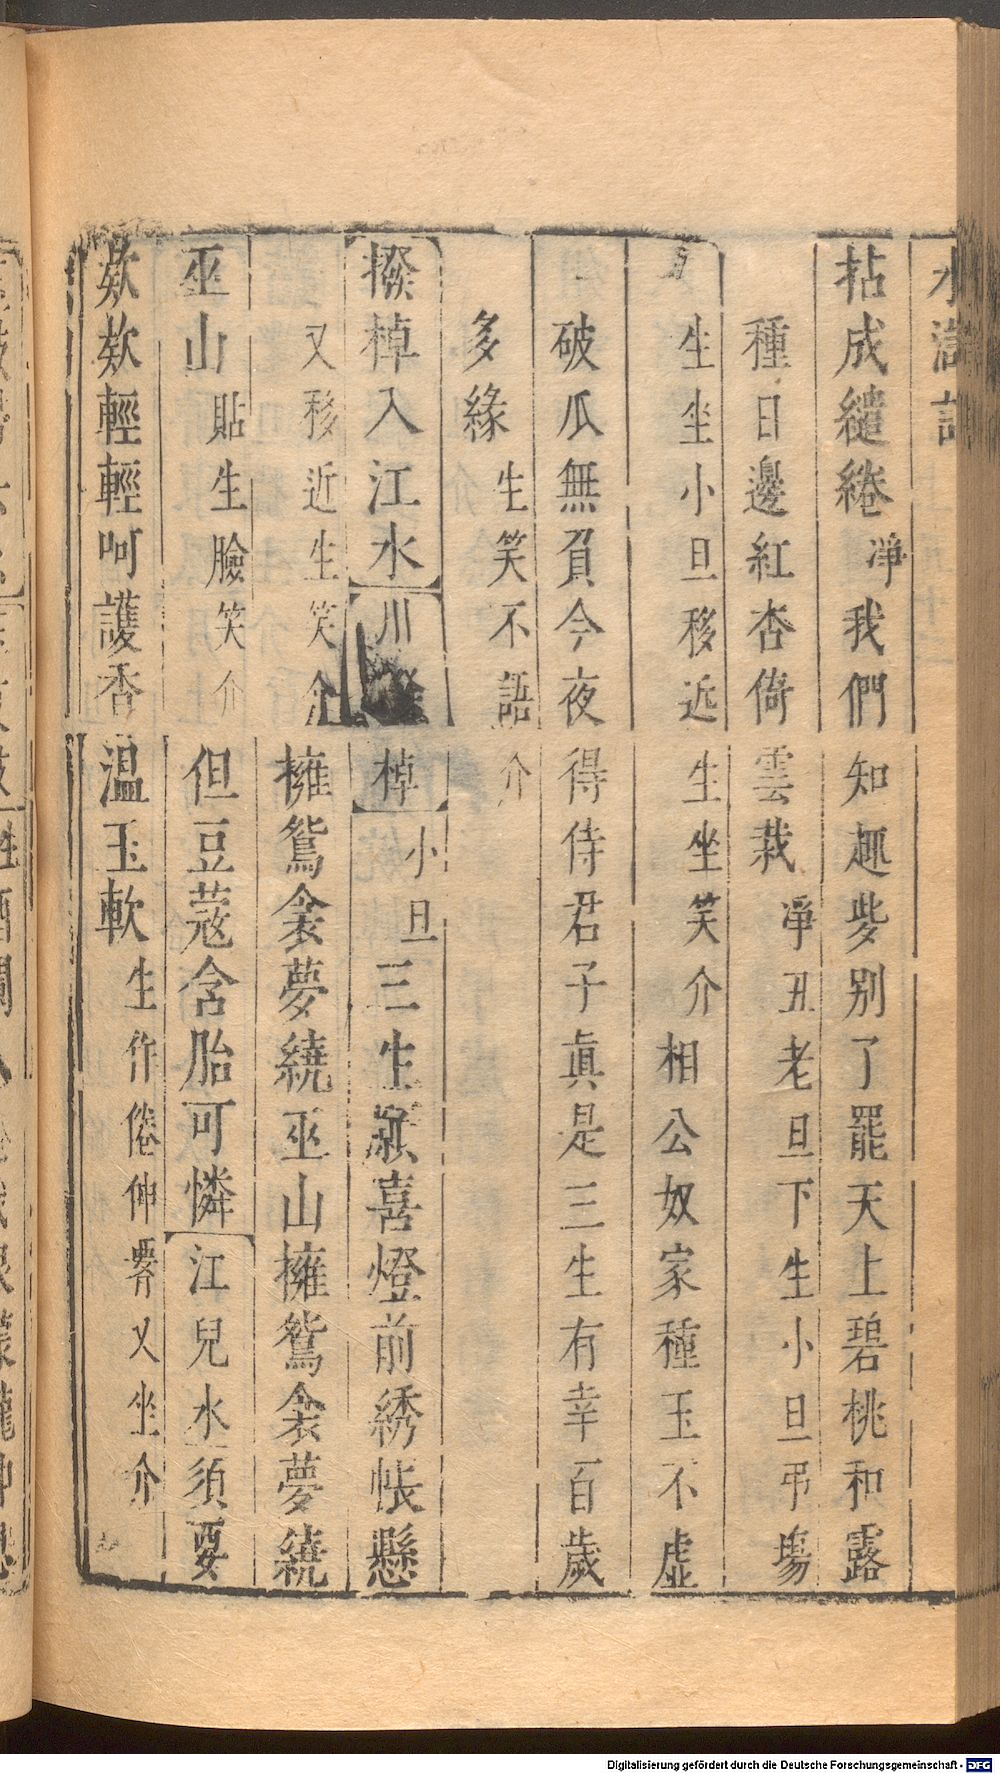 水滸記
拈成繾綣淨我們知趣些别了罷天上碧桃和露
種日邊紅杏倚雲栽淨丑老旦下生小旦弔塲
生坐小旦移近生坐笑介相公奴家種玉不虛
破瓜無負今夜得侍君子眞是三生有幸百歲
多緣生笑不語介
撥棹入江水川棹小旦三生願喜燈前綉帳懸
又移近生笑介擁鴛衾夢繞巫山擁鴛衾夢繞
巫山貼生臉笑介但豆蔻含胎可憐江兒水須要
欵欵輕輕呵護香溫玉軟生作倦伸畧又坐介
Digitalisierung gefördert durch die Deutsche Forschungsgemeinschaft - DFG